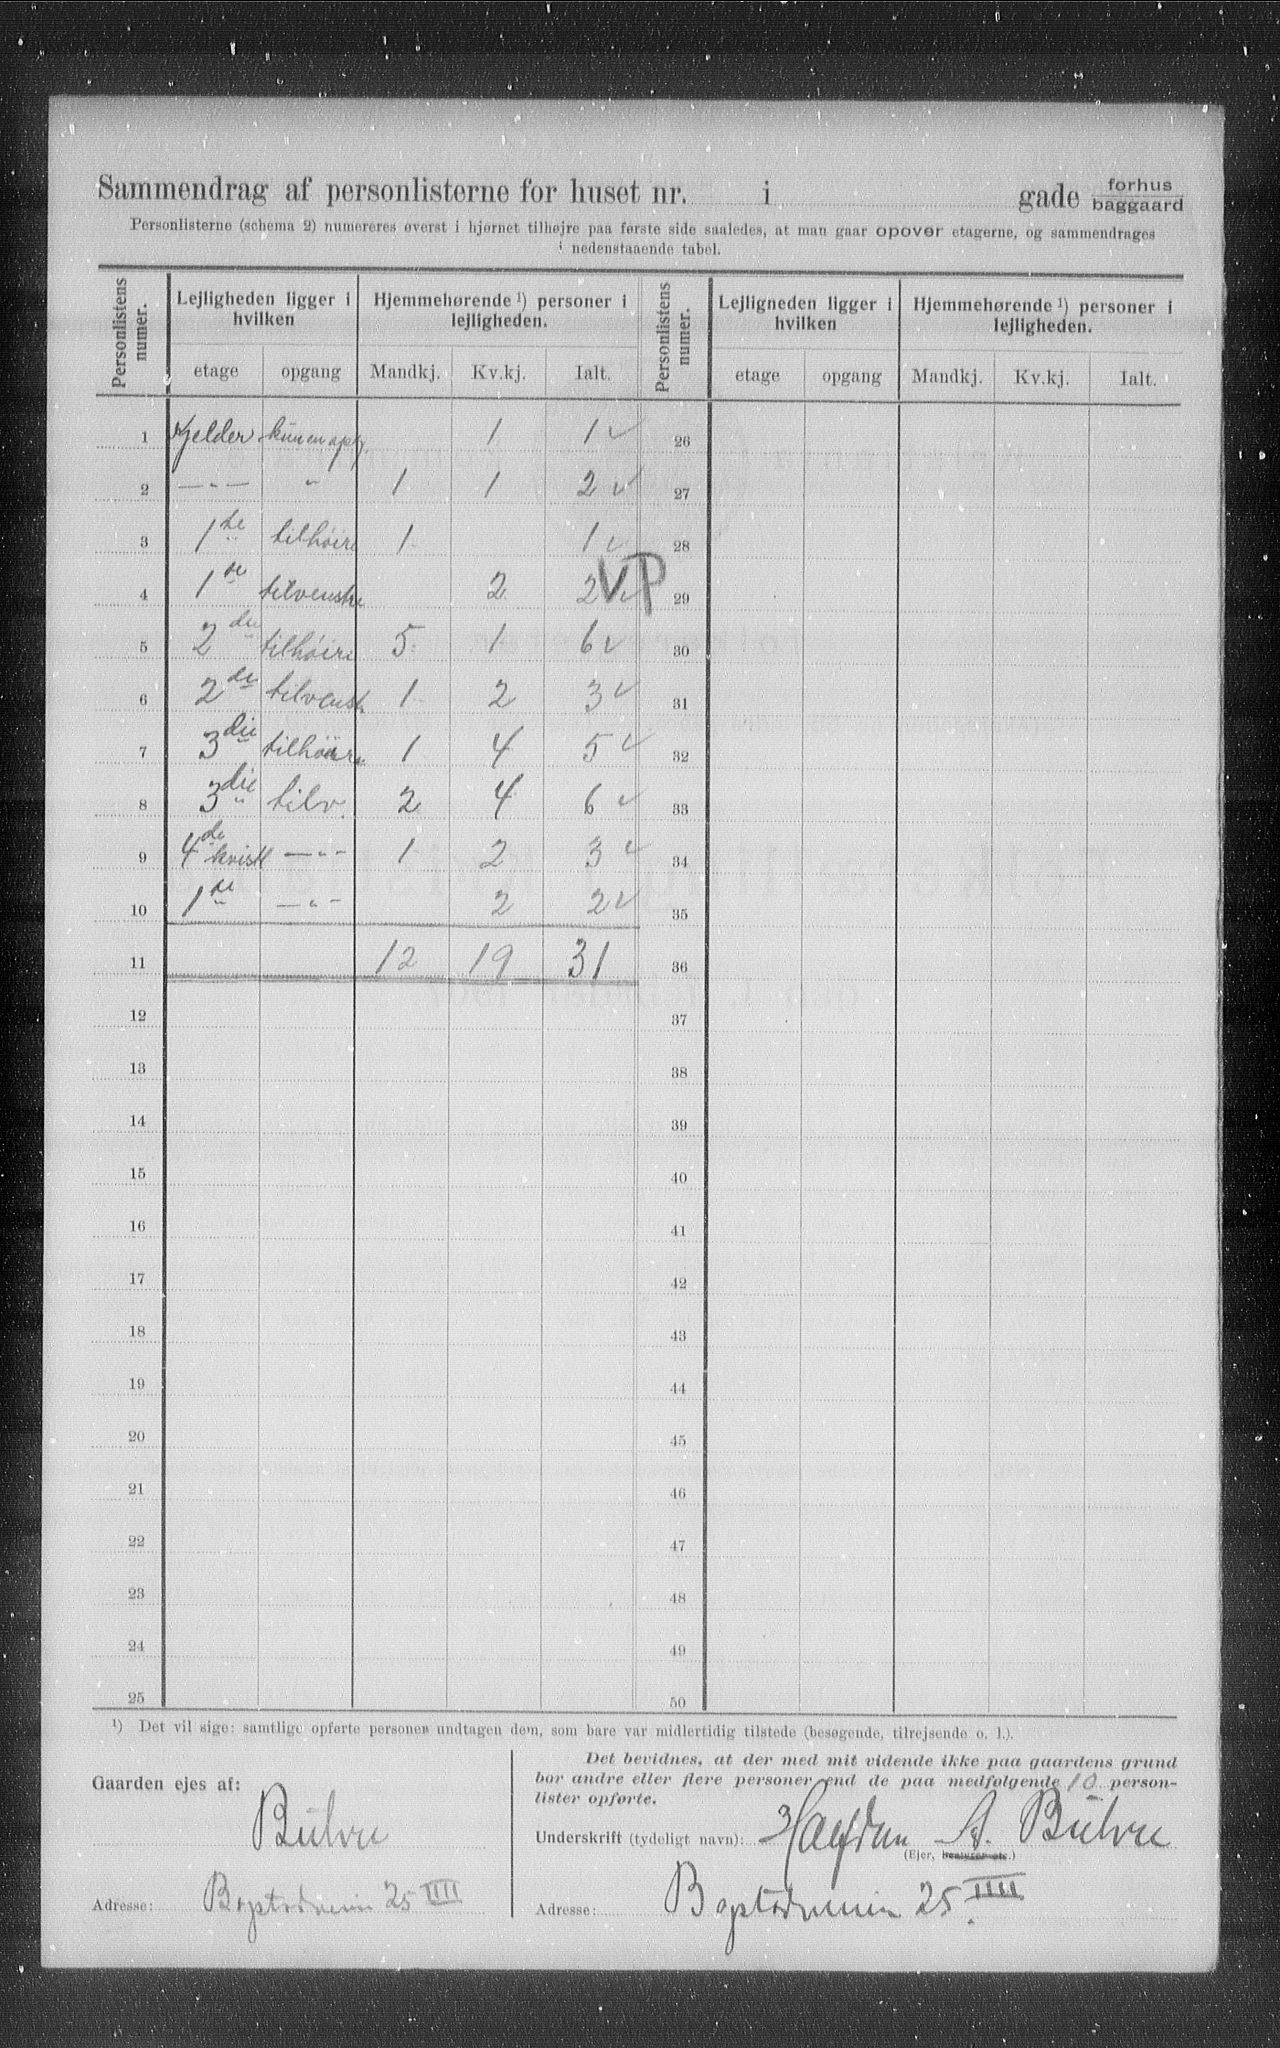 Sammendrag af personlisterne for huset nr. i gade forhus
baggaard
Personlisterne (schema 2) numereres øverst i hjørnet tilhøjre paa første side saaledes, at man gaar opover etagerne, og sammendrages
i nedenstaaende tabel.
Personlistens numer. Lejligheden ligger i hvilken Hjemmehørende ¹) personer i lejligheden. Personlistens numer. Lejligheden ligger i hvilken Hjemmehørende ¹) personer i lejligheden.
etage opgang Mandkj. Kv.kj. Ialt. etage opgang Mandkj. Kv.kj. Ialt.
1 Kjelder kun en opg. 1 1 ✓ 26
2 —„— „ 1 1 2 ✓ 27
3 1de tilhöire 1 1 ✓ 28
4 1de tilvenstre 2 2 ✓ VP 29
5 2den tilhöire 5 1 6 ✓ 30
6 2de tilvenst 1 2 3 ✓ 31
7 3die tilhöire 1 4 5 ✓ 32
8 3die tilv. 2 4 6 ✓ 33
9 4de kvist —„— 1 2 3 ✓ 34
10 1de —„— 2 2 ✓ 35
11 12 19 31 36
12 37
13 38
14 39
15 40
16 41
17 42
18 43
19 44
20 45
21 46
22 47
23 48
24 49
25 50
¹) Det vil sige: samtlige opførte personer undtagen dem, som bare var midlertidig tilstede (besøgende, tilrejsende o. l.).
Gaarden ejes af:
Bülow
Adresse: 25 IIII
Det bevidnes, at der med mit vidende ikke paa gaardens grund
bor andre eller flere personer end de paa medfølgende 10 person-
lister opførte.
Underskrift (tydeligt navn): Halfdan A. Bülow
(Ejer, bestyrer etc.)
Adresse: 25 IIII.